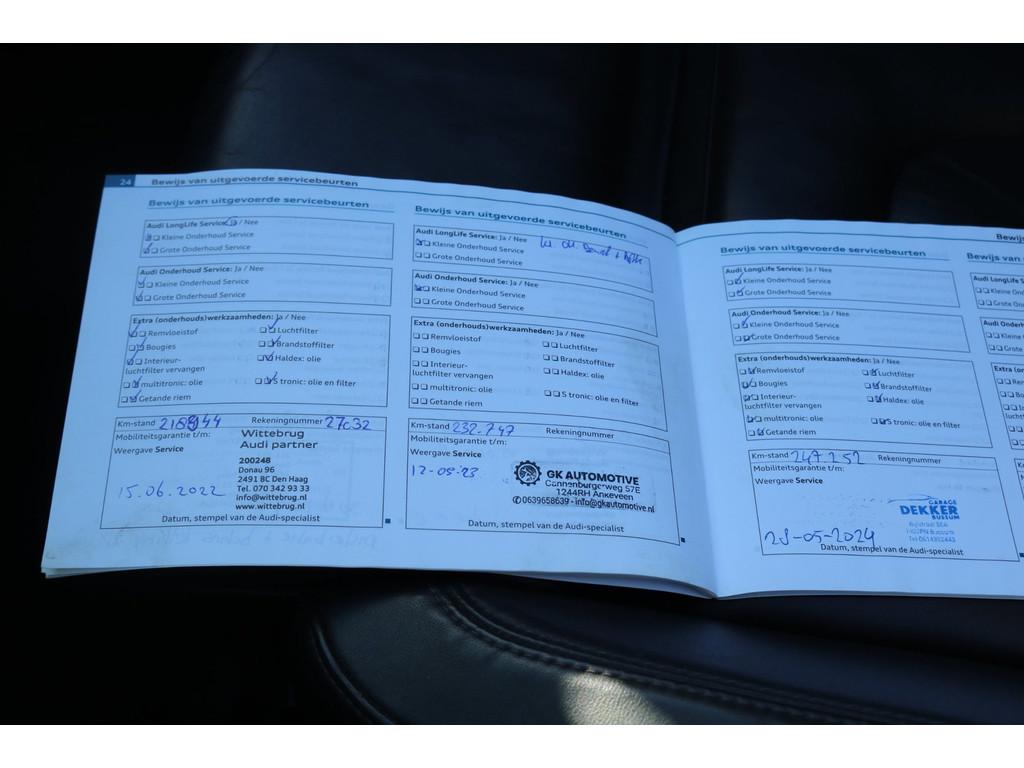 24 Bewijs van uitgevoerde servicebeurten
Bewijs van uitgevoerde servicebeurten
Audi LongLife Service: Ja / Nee
Kleine Onderhoud Service
Grote Onderhoud Service
Audi Onderhoud Service: Ja / Nee
Kleine Onderhoud Service
Grote Onderhoud Service
Extra (onderhouds)werkzaamheden: Ja / Nee
Remvloeistof Luchtfilter
Bougies Brandstoffilter
Interieur- Haldex: olie
luchtfilter vervangen
multitronic: olie S tronic: olie en filter
Getande riem
Km-stand Rekeningnummer
Mobiliteitsgarantie t/m: Wittebrug
Audi partner
Weergave Service
200248
Donau 96
2491 BC Den Haag
Tel. 070 342 93 33
info@wittebrug.nl
www.wittebrug.nl
15.06.2022
Datum, stempel van de Audi-specialist
Bewijs van uitgevoerde servicebeurten
Audi LongLife Service: Ja / Nee
Kleine Onderhoud Service
Grote Onderhoud Service
Audi Onderhoud Service: Ja / Nee
Kleine Onderhoud Service
Grote Onderhoud Service
Extra (onderhouds)werkzaamheden: Ja / Nee
Remvloeistof Luchtfilter
Bougies Brandstoffilter
Interieur- Haldex: olie
luchtfilter vervangen
multitronic: olie S tronic: olie en filter
Getande riem
Km-stand 232.747 Rekeningnummer
Mobiliteitsgarantie t/m:
Weergave Service
GK AUTOMOTIVE
Cannenburgerweg 57E
1244RH Ankeveen
0639658639 - info@gkautomotive.nl
Datum, stempel van de Audi-specialist
Bewijs van uitgevoerde servicebeurten
Audi LongLife Service: Ja / Nee
Kleine Onderhoud Service
Grote Onderhoud Service
Audi Onderhoud Service: Ja / Nee
Kleine Onderhoud Service
Grote Onderhoud Service
Extra (onderhouds)werkzaamheden: Ja / Nee
Remvloeistof Luchtfilter
Bougies Brandstoffilter
Interieur- Haldex: olie
luchtfilter vervangen
multitronic: olie S tronic: olie en filter
Getande riem
Km-stand 247.252 Rekeningnummer
Mobiliteitsgarantie t/m:
Weergave Service
GARAGE
DEKKER
BUSSUM
28-05-2024
Datum, stempel van de Audi-specialist
Bewijs van
Audi LongLife
Kleine
Grote